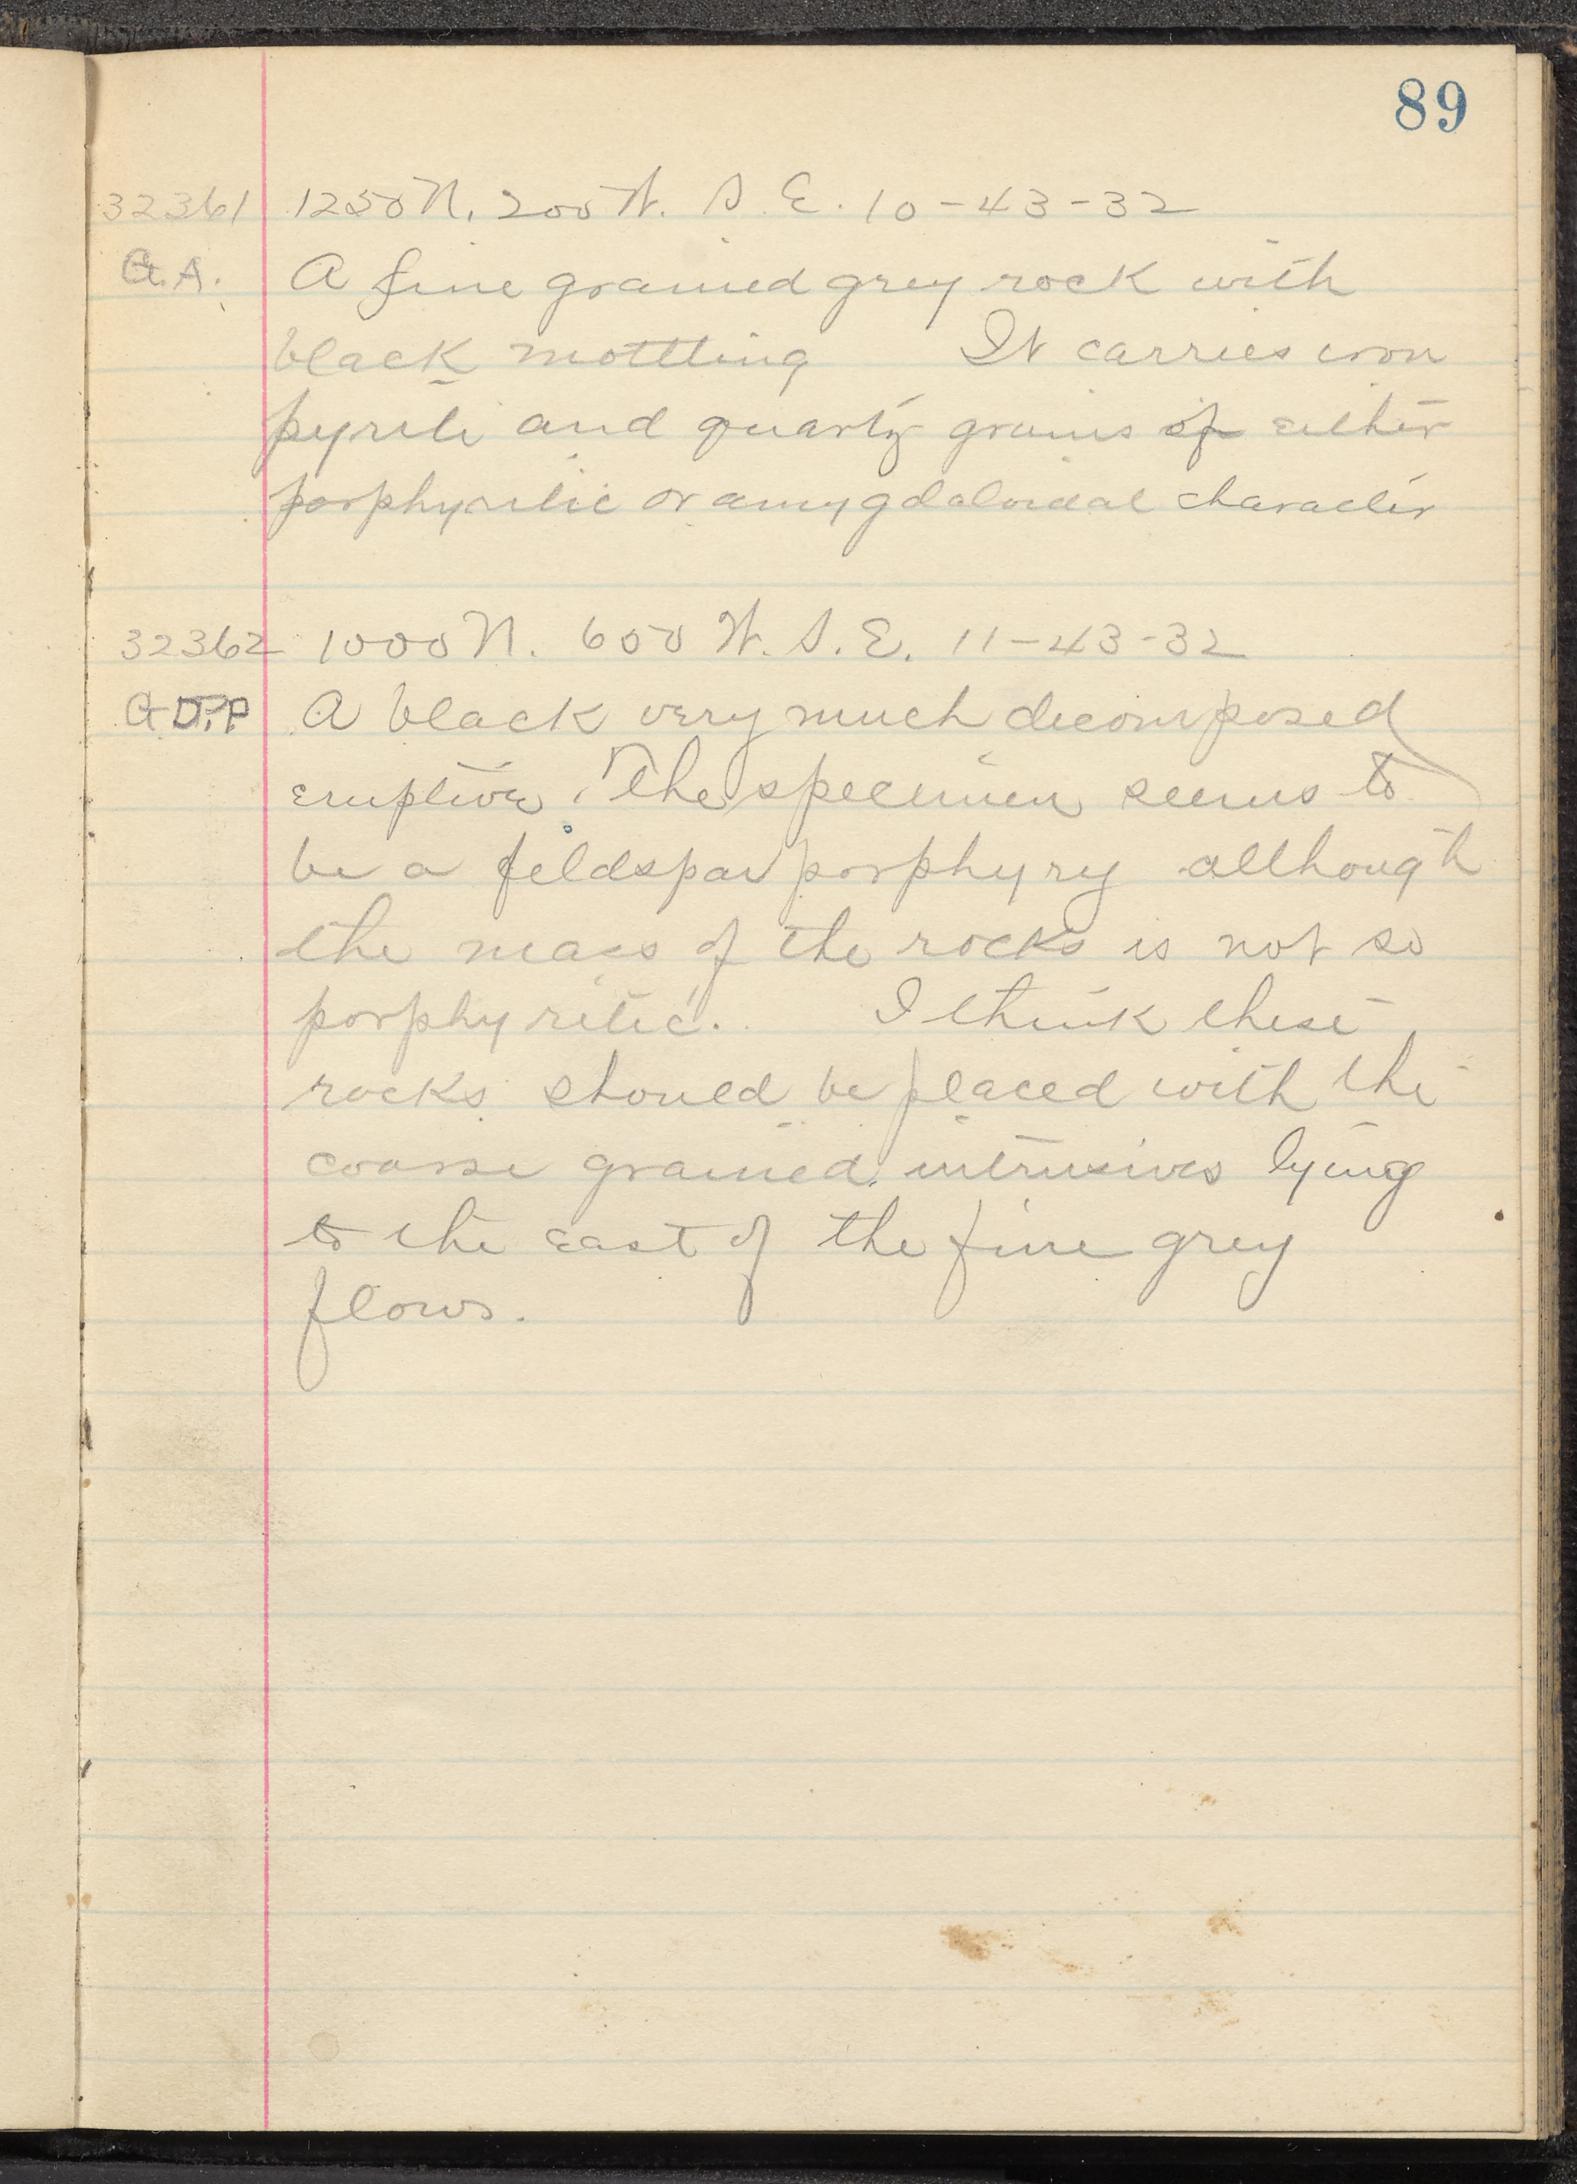 89
32361 1250 N. 200 W. S. E. 10-43-32
G.A. A fine grained grey rock with
black mottling It carries iron
pyrite and quartz grains of either
porphyritic or amygdaloidal character
32362 1000 N. 600 W. S. E. 11-43-32
A black very much decomposed
eruptive. The specimen seems to
be a feldspar porphyry although
the mass of the rocks is not so
porphyritic. I think these
rocks should be placed with the
coarse grained intrusives lying
to the east of the fine grey
flows.